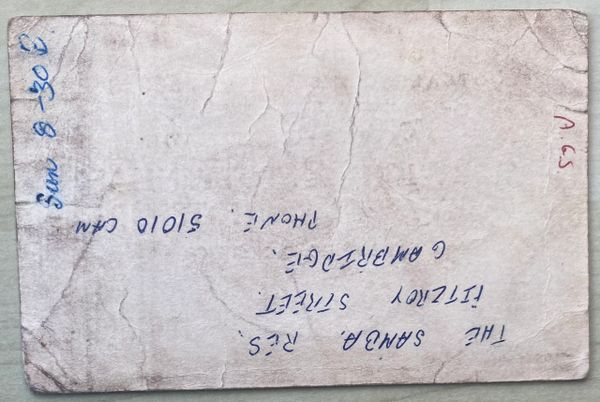 THE SAMBA RES.
FITZROY STREET.
CAMBRIDGE.
PHONE. 51010 CAM
Sun 8-30
A.GS.